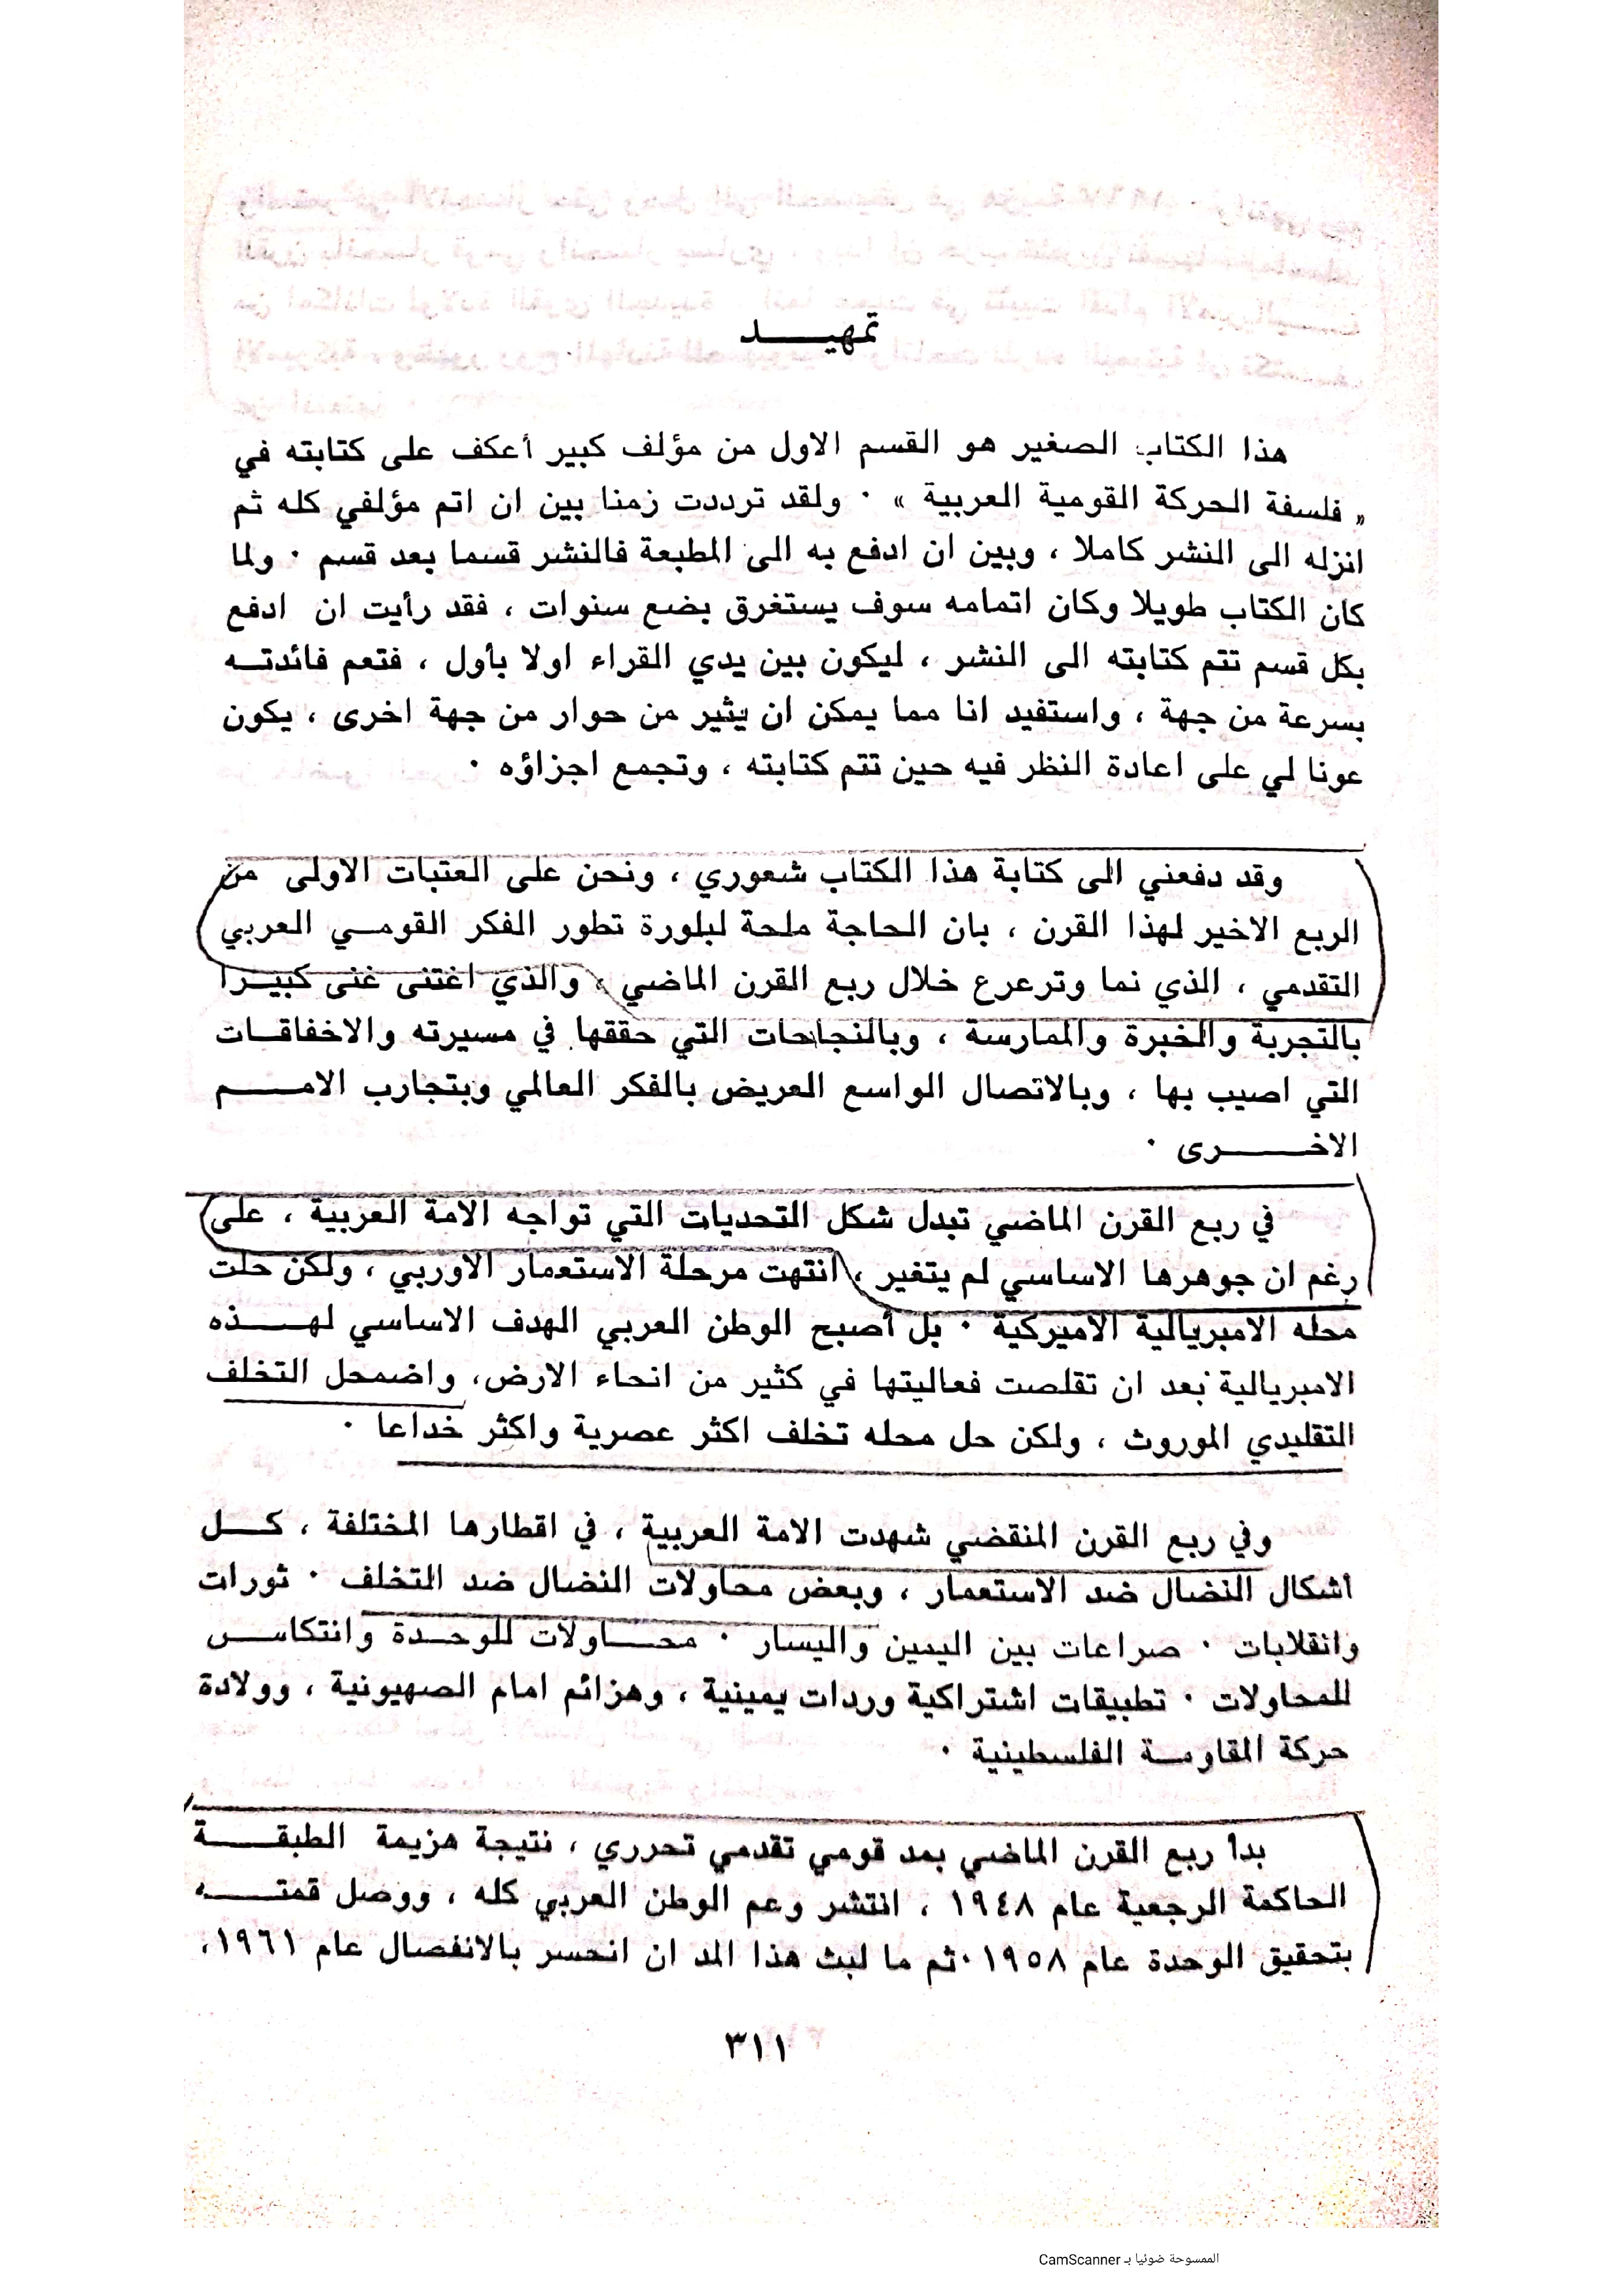 تمهيــــــد
هذا الكتاب الصغير هو القسم الاول من مؤلف كبير أعكف على كتابته في
« فلسفة الحركة القومية العربية » . ولقد ترددت زمنا بين ان اتم مؤلفي كله ثم
انزله الى النشر كاملا ، وبين ان ادفع به الى المطبعة فالنشر قسما بعد قسم . ولما
كان الكتاب طويلا وكان اتمامه سوف يستغرق بضع سنوات ، فقد رأيت ان ادفع
بكل قسم تتم كتابته الى النشر ، ليكون بين يدي القراء اولا بأول ، فتعم فائدتــه
بسرعة من جهة ، واستفيد انا مما يمكن ان يثير من حوار من جهة اخرى ، يكون
عونا لي على اعادة النظر فيه حين تتم كتابته ، وتجمع اجزاؤه .
وقد دفعني الى كتابة هذا الكتاب شعوري ، ونحن على العتبات الاولى من
الربع الاخير لهذا القرن ، بان الحاجة ملحة لبلورة تطور الفكر القومــي العربي
التقدمي ، الذي نما وترعرع خلال ربع القرن الماضي ، والذي اغتنى غنى كبيــرا
بالتجربة والخبرة والممارسة ، وبالنجاحات التي حققها في مسيرته والاخفاقــات
التي اصيب بها ، وبالاتصال الواسع العريض بالفكر العالمي وبتجارب الامــــم
الاخــــــرى .
في ربع القرن الماضي تبدل شكل التحديات التي تواجه الامة العربية ، على
رغم ان جوهرها الاساسي لم يتغير ، انتهت مرحلة الاستعمار الاوربي ، ولكن حلت
محله الامبريالية الاميركية . بل أصبح الوطن العربي الهدف الاساسي لهــــذه
الامبريالية بعد ان تقلصت فعاليتها في كثير من انحاء الارض، واضمحل التخلف
التقليدي الموروث ، ولكن حل محله تخلف اكثر عصرية واكثر خداعا .
وفي ربع القرن المنقضي شهدت الامة العربية ، في اقطارها المختلفة ، كــل
أشكال النضال ضد الاستعمار ، وبعض محاولات النضال ضد التخلف . ثورات
وانقلابات . صراعات بين اليمين واليسار . محــاولات للوحــدة وانتكاســ
للمحاولات . تطبيقات اشتراكية وردات يمينية ، وهزائم امام الصهيونية ، وولادة
حركة المقاومــة الفلسطينية .
بدأ ربع القرن الماضي بمد قومي تقدمي تحرري ، نتيجة هزيمة الطبقـــة
الحاكمة الرجعية عام ١٩٤٨ ، انتشر وعم الوطن العربي كله ، ووصل قمتــــه
بتحقيق الوحدة عام ١٩٥٨ . ثم ما لبث هذا المد ان انحسر بالانفصال عام ١٩٦١،
٣١١
الممسوحة ضوئيا بـ CamScanner